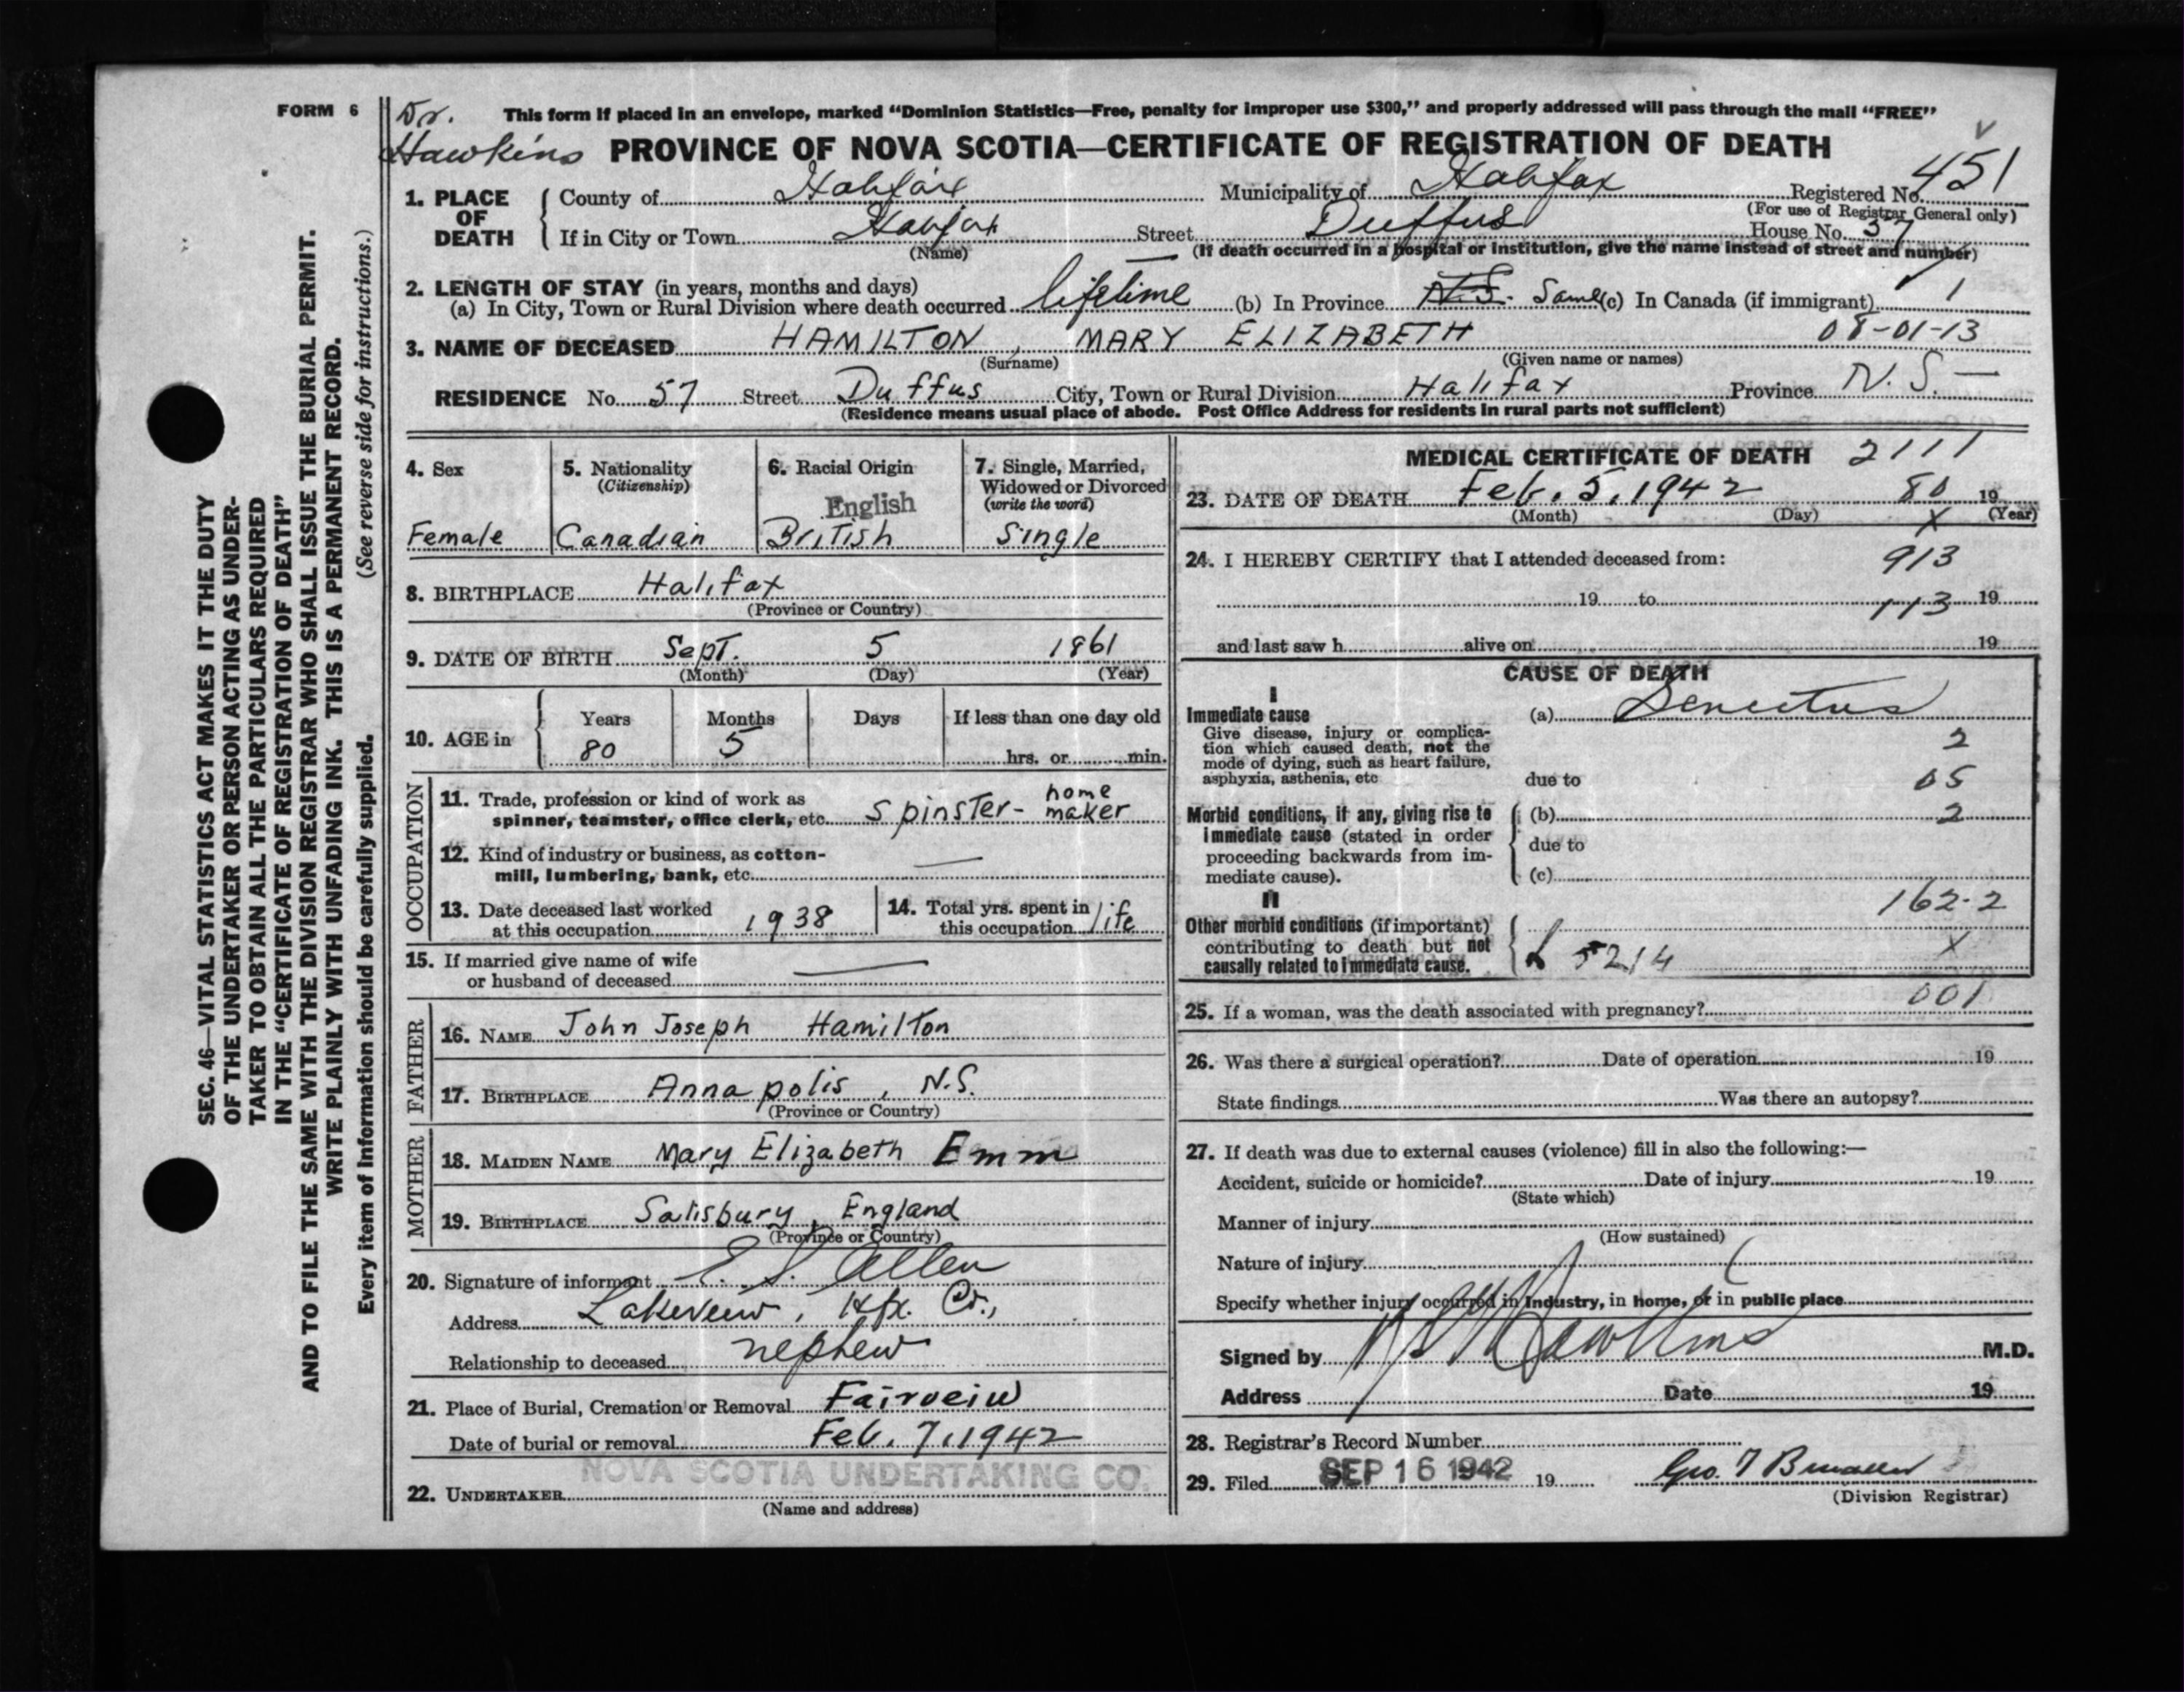 FORM 6
Dr.
Hawkins
This form if placed in an envelope, marked “Dominion Statistics—Free, penalty for improper use $300,” and properly addressed will pass through the mail “FREE”
PROVINCE OF NOVA SCOTIA—CERTIFICATE OF REGISTRATION OF DEATH
1. PLACE OF DEATH { County of Halifax Municipality of Halifax Registered No. 451
(For use of Registrar General only)
If in City or Town Halifax Street Duffus House No. 57
(Name) (If death occurred in a hospital or institution, give the name instead of street and number)
2. LENGTH OF STAY (in years, months and days)
(a) In City, Town or Rural Division where death occurred lifetime (b) In Province N.S. Same (c) In Canada (if immigrant) 1
08-01-13
3. NAME OF DECEASED HAMILTON, MARY ELIZABETH
(Surname) (Given name or names)
RESIDENCE No. 57 Street Duffus City, Town or Rural Division Halifax Province N.S. —
(Residence means usual place of abode. Post Office Address for residents in rural parts not sufficient)
4. Sex
Female
5. Nationality
(Citizenship)
Canadian
6. Racial Origin
English
British
7. Single, Married,
Widowed or Divorced
(write the word)
Single
8. BIRTHPLACE Halifax
(Province or Country)
9. DATE OF BIRTH Sept. 5 1861
(Month) (Day) (Year)
10. AGE in { Years Months Days If less than one day old
80 5 hrs. or min.
OCCUPATION
11. Trade, profession or kind of work as
spinner, teamster, office clerk, etc. Spinster- home maker
12. Kind of industry or business, as cotton-
mill, lumbering, bank, etc. —
13. Date deceased last worked
at this occupation 1938
14. Total yrs. spent in
this occupation life
15. If married give name of wife
or husband of deceased —
FATHER
16. NAME John Joseph Hamilton
17. BIRTHPLACE Annapolis, N.S.
(Province or Country)
MOTHER
18. MAIDEN NAME Mary Elizabeth Emm
19. BIRTHPLACE Salisbury, England
(Province or Country)
20. Signature of informant E. S. Allen
Address Lakeveiw, Hfx. Co.,
Relationship to deceased nephew
21. Place of Burial, Cremation or Removal Fairveiw
Date of burial or removal Feb. 7, 1942
NOVA SCOTIA UNDERTAKING CO.
22. UNDERTAKER
(Name and address)
MEDICAL CERTIFICATE OF DEATH 2111
23. DATE OF DEATH Feb. 5, 1942 80 19
(Month) (Day) X (Year)
24. I HEREBY CERTIFY that I attended deceased from: 913
19 to 113 19
and last saw h alive on 19
CAUSE OF DEATH
I
Immediate cause (a) Senectus
Give disease, injury or complica-
tion which caused death, not the 2
mode of dying, such as heart failure,
asphyxia, asthenia, etc due to 05
Morbid conditions, if any, giving rise to (b) 2
immediate cause (stated in order due to
proceeding backwards from im-
mediate cause). (c)
II 162-2
Other morbid conditions (if important)
contributing to death but not X
causally related to immediate cause. 5214
25. If a woman, was the death associated with pregnancy? 001
26. Was there a surgical operation? Date of operation 19
State findings Was there an autopsy?
27. If death was due to external causes (violence) fill in also the following:—
Accident, suicide or homicide? Date of injury 19
(State which)
Manner of injury
(How sustained)
Nature of injury
Specify whether injury occurred in industry, in home, or in public place
Signed by Hawkins M.D.
Address Date 19
28. Registrar's Record Number
29. Filed SEP 16 1942 19 Geo. T
(Division Registrar)
SEC. 46—VITAL STATISTICS ACT MAKES IT THE DUTY
OF THE UNDERTAKER OR PERSON ACTING AS UNDER-
TAKER TO OBTAIN ALL THE PARTICULARS REQUIRED
IN THE “CERTIFICATE OF REGISTRATION OF DEATH”
AND TO FILE THE SAME WITH THE DIVISION REGISTRAR WHO SHALL ISSUE THE BURIAL PERMIT.
WRITE PLAINLY WITH UNFADING INK. THIS IS A PERMANENT RECORD.
Every item of information should be carefully supplied. (See reverse side for instructions.)